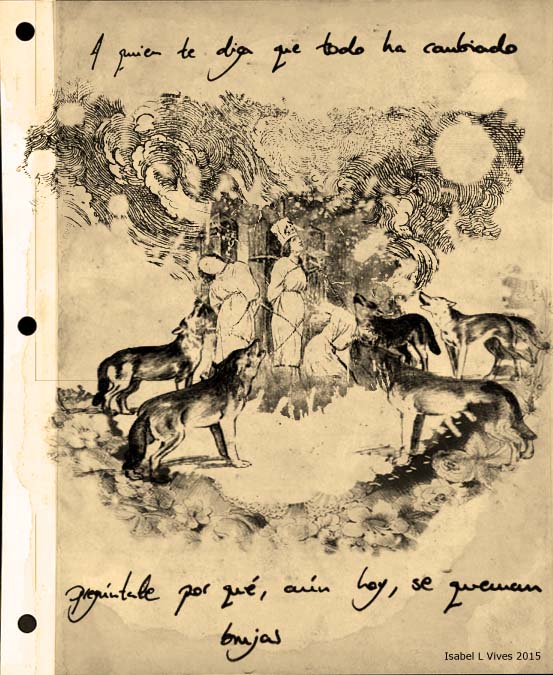 A quien te diga que todo ha cambiado
pregúntale por qué, aún hoy, se queman
brujas
Isabel L Vives 2015